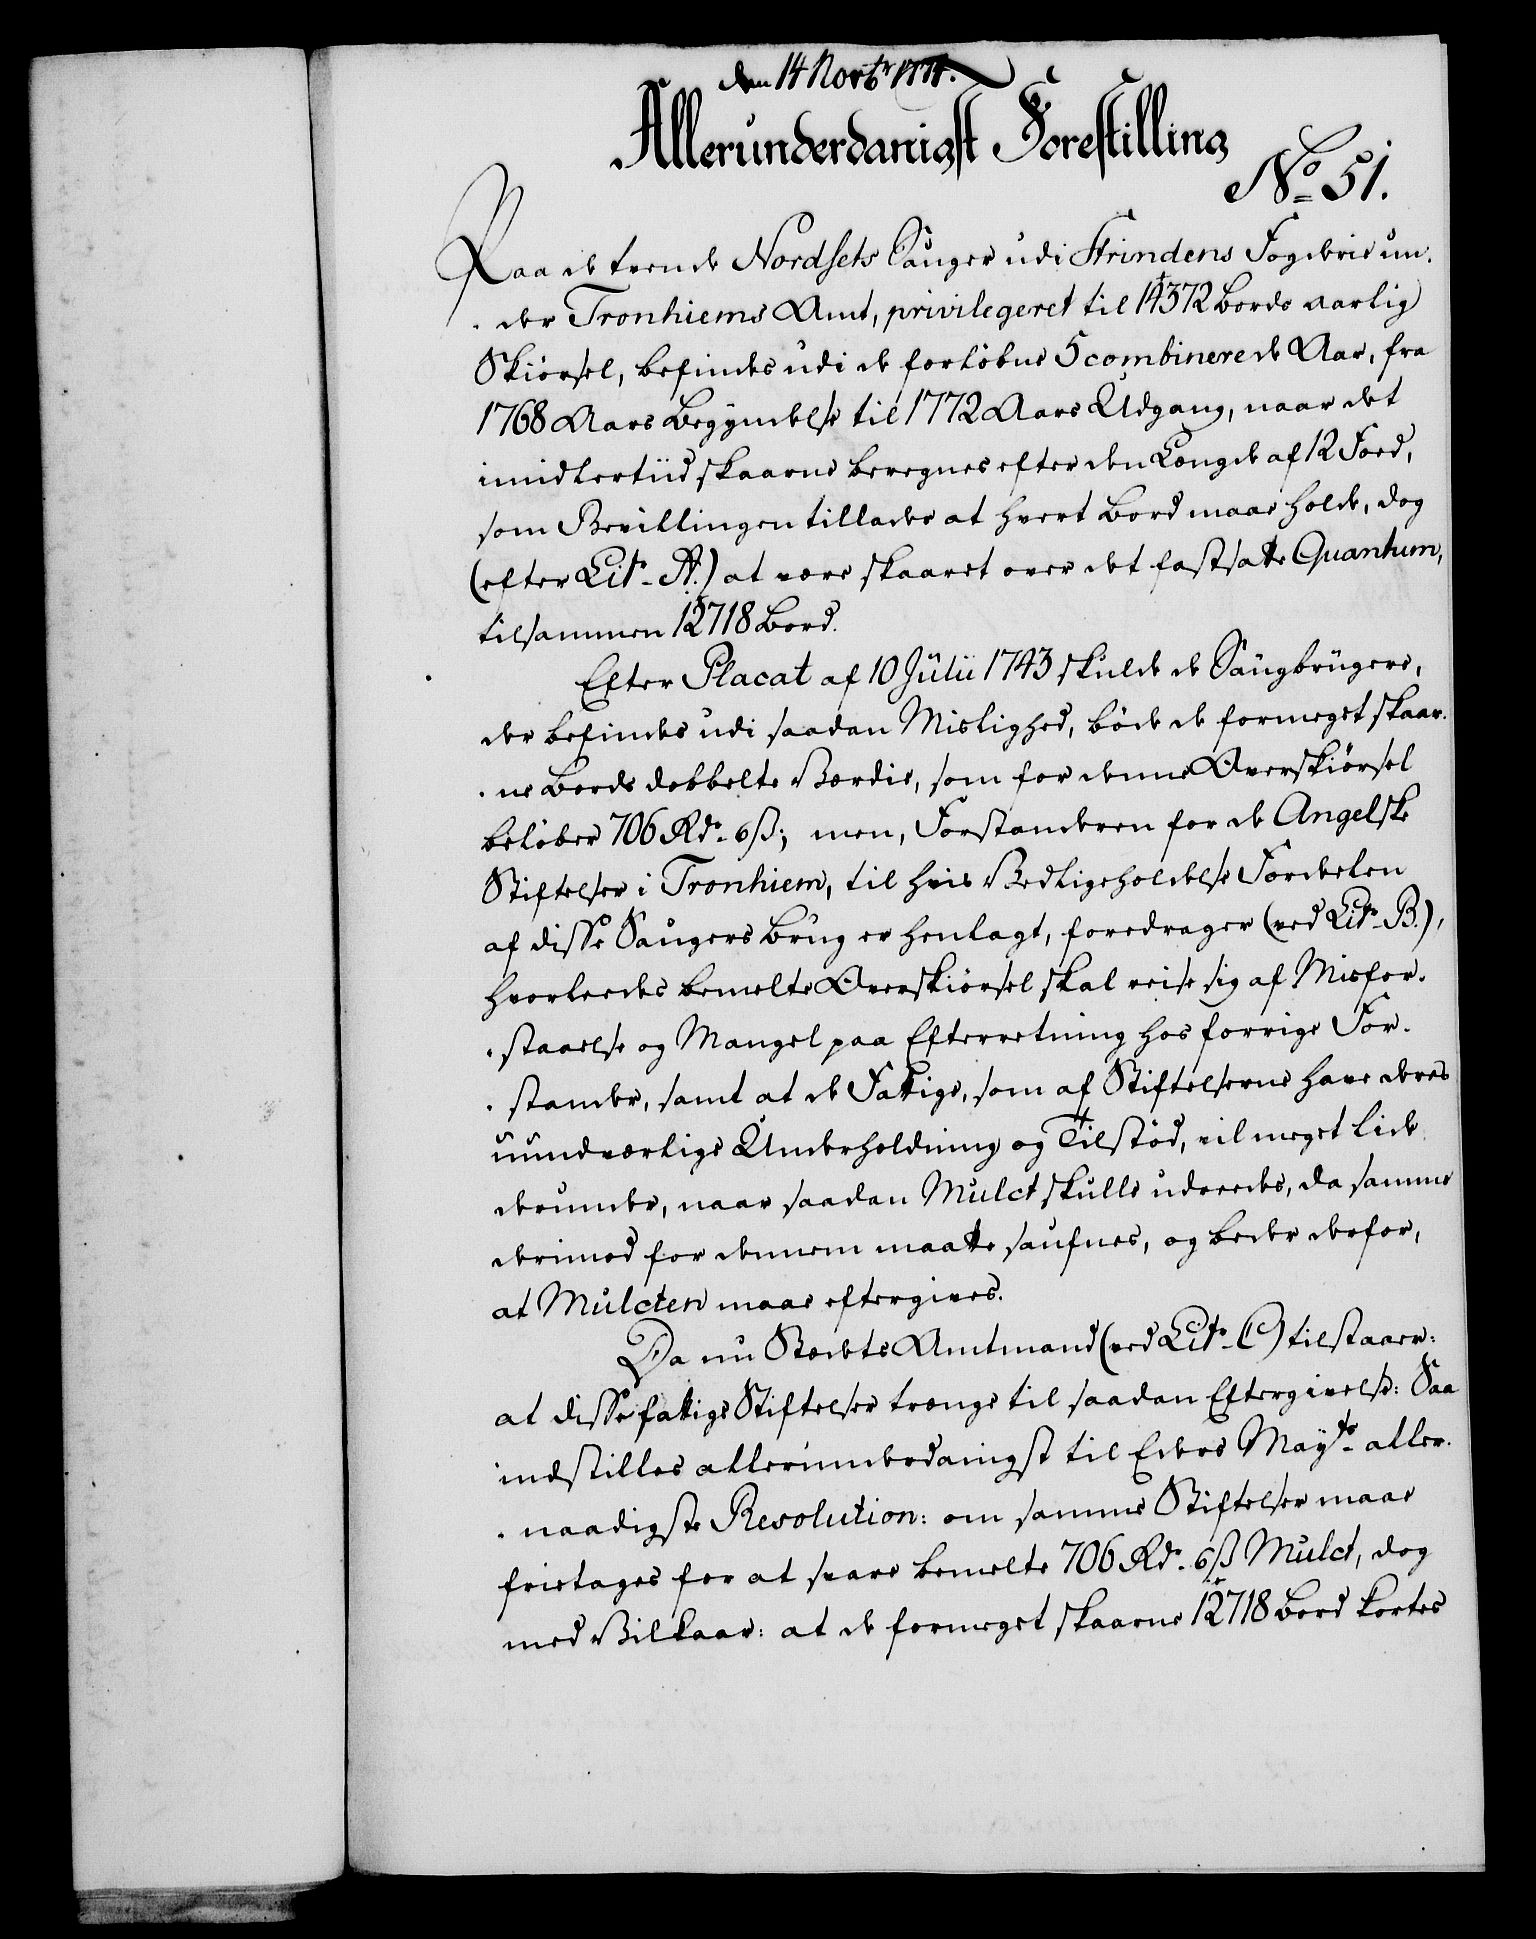 den 14 Novbr 1774.
Allerunderdanigst Forestilling
No 51.
Paa de tvende Nordsets Sauger udi Strindens Fogderie un-
-der Tronhiems Amt, privilegeret til 14372 Bords aarlig
Skiørsel, befindes udi de forløbne 5 combinerede Aar, fra
1768 Aars Begyndelse til 1772 Aars Udgang, naar det
imidlertiid skaarne beregnes efter den Længde af 12 Foed,
som Bevillingen tillader at hvert Bord maae holde, dog
(efter Litr. A.) at være skaaret over det fastsatte Quantum,
tilsammen 12718 Bord.
Efter Placat af 10 Julii 1743 skulde de Saugbrugere,
der befindes udi saadan Mislighed, bøde de formeget skaar-
-ne Bords dobbelte Værdie, som for denne Overskiørsel
beløber 706 Rdr. 6 ß; men, Forstanderen for de Angelske
Stiftelser i Tronhiem, til hvis Vedligeholdelse Fordeelen
af disse Saugers Brug er henlagt, foredrager (ved Litr. B.),
hvorleedes bemelte Overskiørsel skal reise sig af Misfor-
-staaelse og Mangel paa Efterretning hos forrige For-
-stander, samt at de Fattige, som af Stiftelserne have deres
uundværlige Underholdning og Tilstød, vil meget lide
derunder, naar saadan Mulct skulle udreedes, da samme
derimod for dennem maatte saufnes, og beder derfor,
at Mulcten maae eftergives.
Da nu Stædets Amtmand (ved Litr. C) tilstaaer:
at disse fattige Stiftelser trænge til saadan Eftergivelse: Saa
indstilles allerunderdanigst til Eders Mayts. aller-
-naadigste Resolution: om samme Stiftelser maae
frietages for at svare bemelte 706 Rdr. 6 ß Mulct, dog
med Vilkaar: at de formeget skaarne 12718 Bord kortes